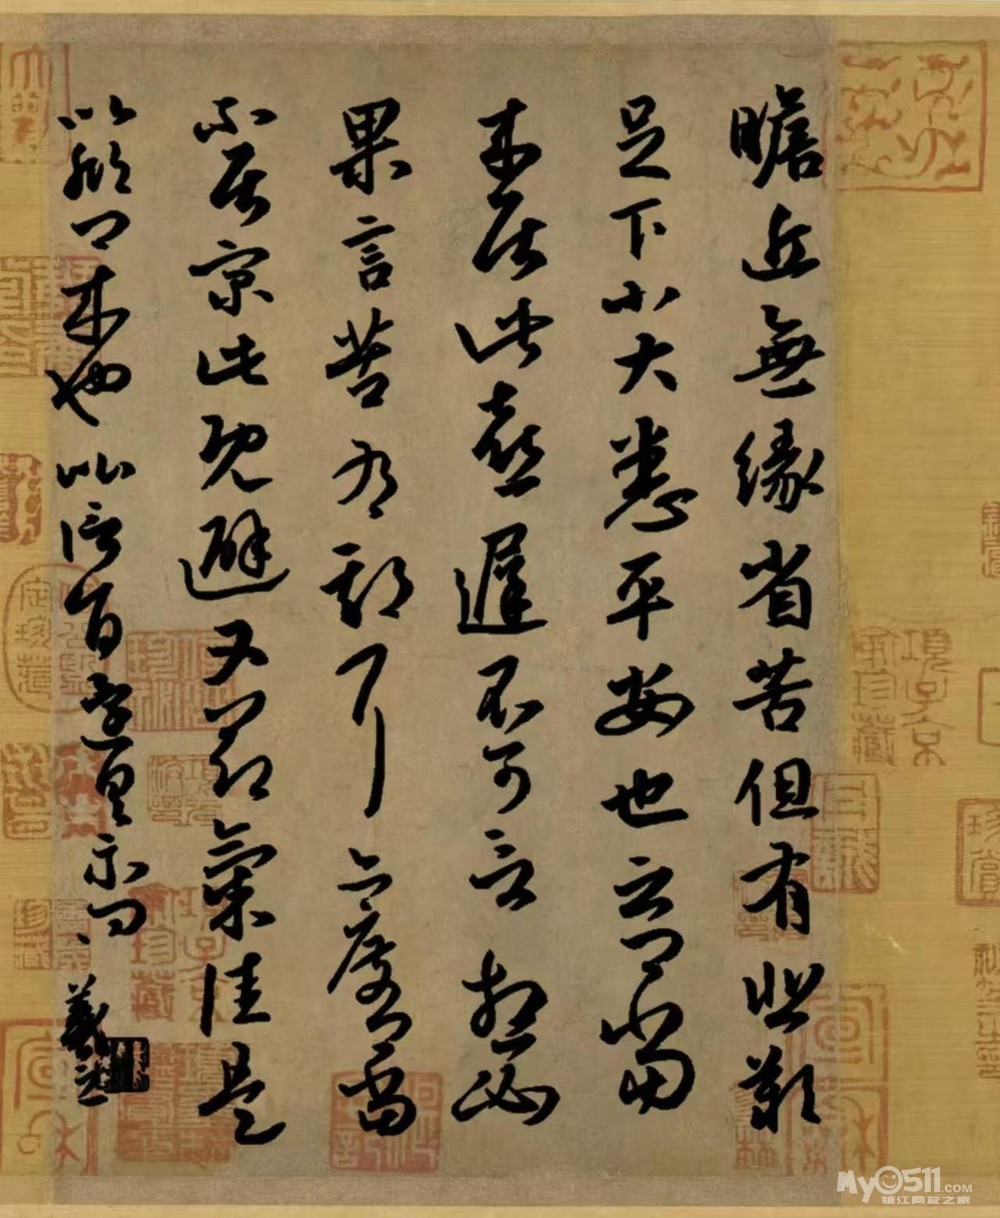 瞻近無緣省苦但有悲歎
足下小大悉平安也云卿當
來居此喜遲不可言想必
果言苦有期耳亦度卿當
不居京此既避又節氣佳是
以欣卿來也此信旨還具示問
羲之
項子京家珍藏
My0511.COM
镇江网友之家